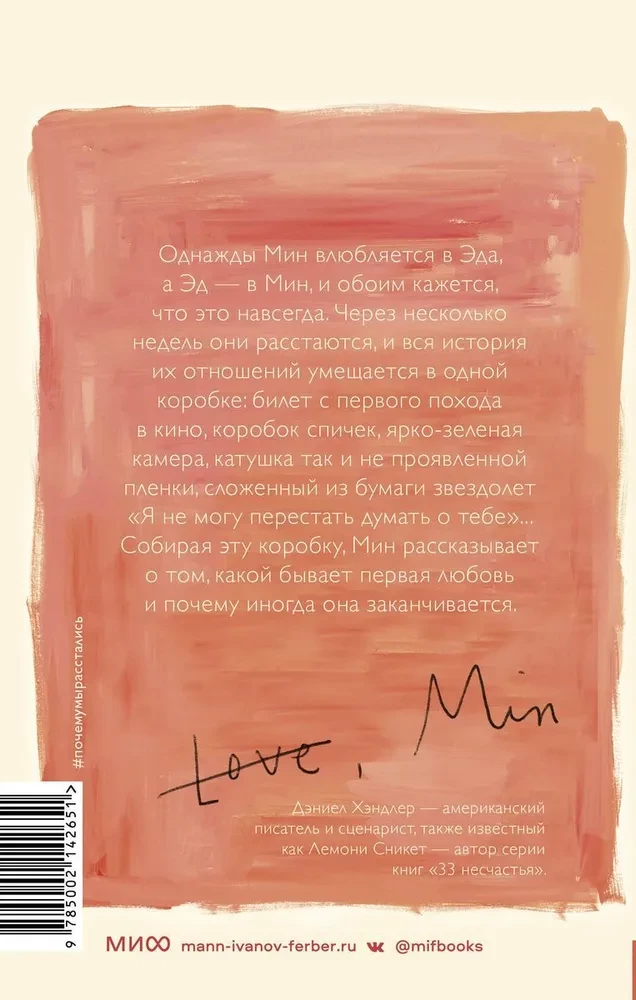 Однажды Мин влюбляется в Эда,
а Эд — в Мин, и обоим кажется,
что это навсегда. Через несколько
недель они расстаются, и вся история
их отношений умещается в одной
коробке: билет с первого похода
в кино, коробок спичек, ярко-зеленая
камера, катушка так и не проявленной
пленки, сложенный из бумаги звездолет
«Я не могу перестать думать о тебе»...
Собирая эту коробку, Мин рассказывает
о том, какой бывает первая любовь
и почему иногда она заканчивается.
#почемумырасстались
Love, Min
Дэниел Хэндлер — американский
писатель и сценарист, также известный
как Лемони Сникет — автор серии
книг «33 несчастья».
9 785002 142651 >
МИФ mann-ivanov-ferber.ru @mifbooks